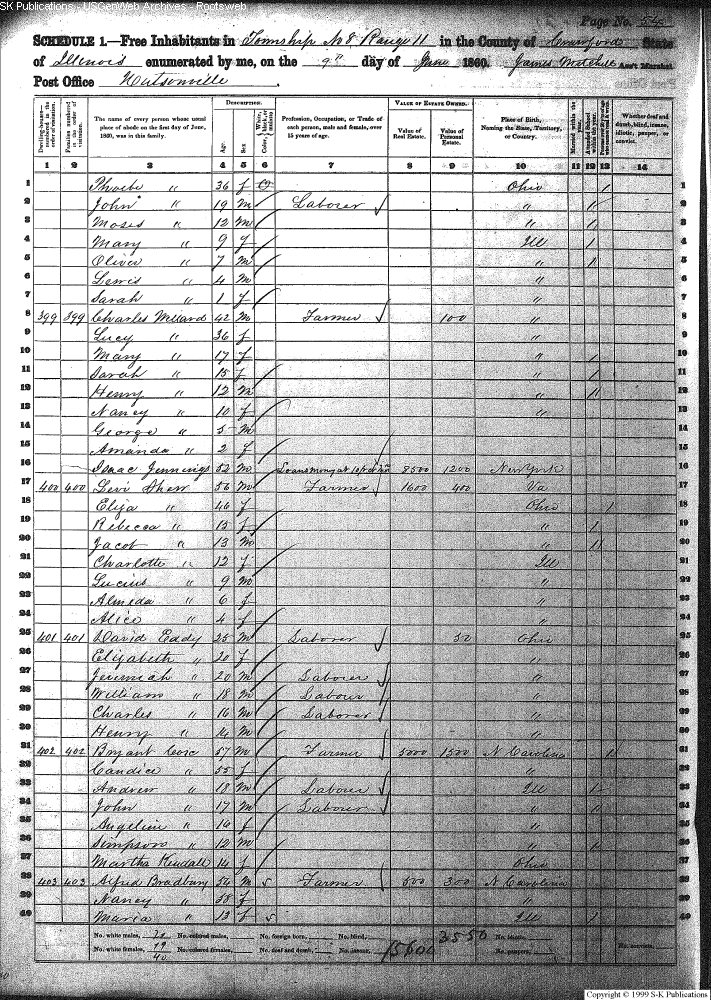 SK Publications - USGenWeb Archives - Rootsweb
Page No.
SCHEDULE 1.—Free Inhabitants in Township No 8 Range 11 in the County of Crawford State
of Illinois enumerated by me, on the 9th day of June 1860. James Mitchell Ass't Marshal
Post Office Hutsonville.
Dwelling-houses—numbered in the order of visitation.
Families numbered in the order of visitation.
The name of every person whose usual place of abode on the first day of June, 1860, was in this family.
DESCRIPTION.
Age.
Sex.
Color, White, black, or mulatto
Profession, Occupation, or Trade of each person, male and female, over 15 years of age.
VALUE OF ESTATE OWNED.
Value of Real Estate.
Value of Personal Estate.
Place of Birth, Naming the State, Territory, or Country.
Married within the year.
Attended School within the year.
Whether deaf and dumb, blind, insane, idiotic, pauper, or convict.
1 2 3 4 5 6 7 8 9 10 11 12 13 14
1 Phoebe " 36 f Ohio / 1
2 John " 19 m Laborer " / 2
3 Moses " 12 m " / 3
4 Mary " 9 f Ill / 4
5 Oliver " 7 m " / 5
6 Lewis " 4 m " 6
7 Sarah " 1 f " 7
8 399 399 Charles Millard 42 m Farmer 100 " 8
9 Lucy " 36 f " 9
10 Mary " 17 f " / 10
11 Sarah " 15 f " / 11
12 Henry " 12 m " / 12
13 Nancy " 10 f " 13
14 George " 5 m 14
15 Amanda " 2 f 15
16 Isaac Jennings 52 m Loans Mony at 8500 1200 New York 16
17 400 400 Levi Shaw 56 m Farmer 1600 400 Va 17
18 Eliza " 46 f Ohio / 18
19 Rebecca " 15 f " / 19
20 Jacob " 13 m " / 20
21 Charlotte " 12 f Ill 21
22 Lucius " 9 m " 22
23 Almeda " 6 f " 23
24 Alice " 4 f " 24
25 401 401 David Eddy 25 m Laborer 50 Ohio 25
26 Elizabeth " 20 f " 26
27 Jeremiah " 20 m Laborer " 27
28 William " 18 m Labour " 28
29 Charles " 16 m Laborer " 29
30 Henry " 14 m " 30
31 402 402 Bryant Cox 57 m Farmer 5000 1500 N Carolina 31
32 Candice " 55 f " 32
33 Andrew " 18 m Labour Ill / 33
34 John " 17 m Labour " / 34
35 Angeline " 14 f " 35
36 Simpson " 12 m " / 36
37 Martha Kendall 14 f Ohio 37
38 403 403 Alfred Bradbury 54 m Farmer 500 300 N Carolina 38
39 Nancy " 58 f " 39
40 Maria " 13 f Ill / 40
No. white males, No. colored males, No. foreign born, No. blind, 15600 3550 No. idiotic,
No. white females, 19 No. colored females, No. deaf and dumb, No. insane, No. paupers, No. convicts,
40
Copyright © 1999 S-K Publications